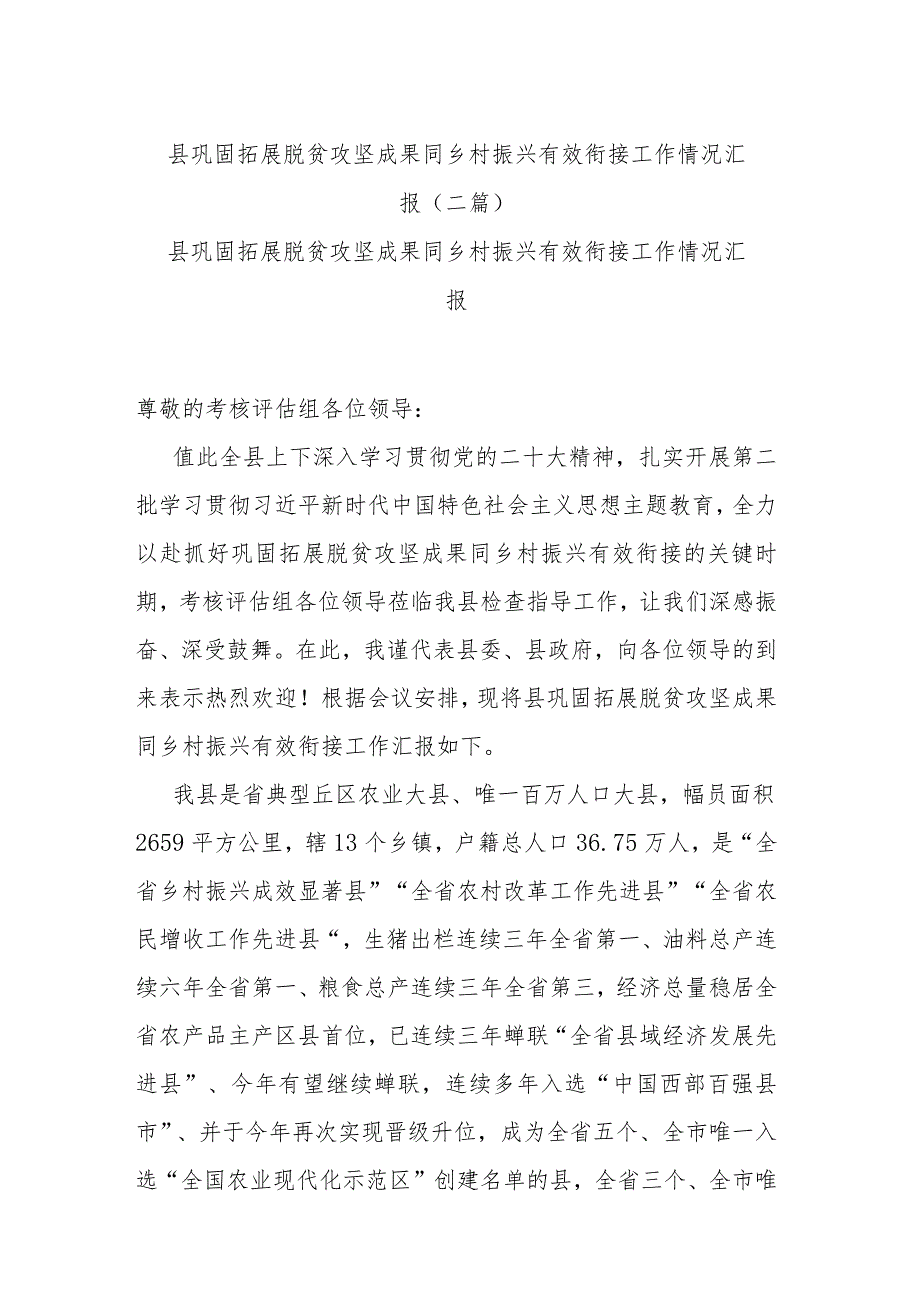 县巩固拓展脱贫攻坚成果同乡村振兴有效衔接工作情况汇
报（二篇）
县巩固拓展脱贫攻坚成果同乡村振兴有效衔接工作情况汇
报
尊敬的考核评估组各位领导：
值此全县上下深入学习贯彻党的二十大精神，扎实开展第二
批学习贯彻习近平新时代中国特色社会主义思想主题教育，全力
以赴抓好巩固拓展脱贫攻坚成果同乡村振兴有效衔接的关键时
期，考核评估组各位领导莅临我县检查指导工作，让我们深感振
奋、深受鼓舞。在此，我谨代表县委、县政府，向各位领导的到
来表示热烈欢迎！根据会议安排，现将县巩固拓展脱贫攻坚成果
同乡村振兴有效衔接工作汇报如下。
我县是省典型丘区农业大县、唯一百万人口大县，幅员面积
2659 平方公里，辖 13 个乡镇，户籍总人口 36.75 万人，是“全
省乡村振兴成效显著县”“全省农村改革工作先进县”“全省农
民增收工作先进县“，生猪出栏连续三年全省第一、油料总产连
续六年全省第一、粮食总产连续三年全省第三，经济总量稳居全
省农产品主产区县首位，已连续三年蝉联“全省县域经济发展先
进县”、今年有望继续蝉联，连续多年入选“中国西部百强县
市”、并于今年再次实现晋级升位，成为全省五个、全市唯一入
选“全国农业现代化示范区”创建名单的县，全省三个、全市唯